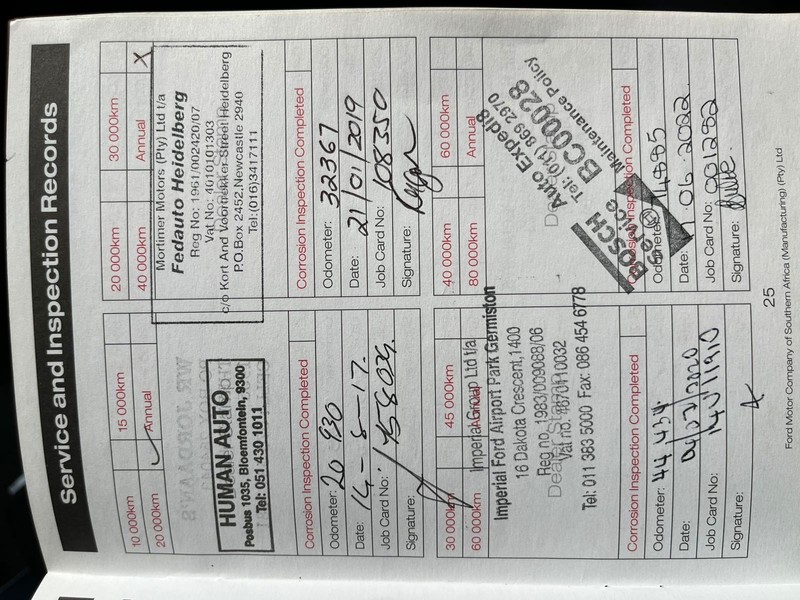 Service and Inspection Records
10 000km
15 000km
20 000km
Annual
HUMAN AUTO
Posbus 1035, Bloemfontein, 9300
Tel: 051 430 1011
Corrosion Inspection Completed
Odometer: 20 930
Date: 14-8-17.
Job Card No:
Signature:
20 000km
30 000km
40 000km
Annual X
Mortimer Motors (Pty) Ltd t/a
Fedauto Heidelberg
Reg No: 1961/002420/07
Vat No: 4010101303
c/o Kort And Voortrekker Street Heidelberg
P.O.Box 2452, Newcastle 2940
Tel:(016)3417111
Corrosion Inspection Completed
Odometer: 32367
Date: 21/01/2019
Job Card No: 108350
Signature:
30 000km
45 000km
60 000km
Annual
Imperial Group Ltd t/a
Imperial Ford Airport Park Germiston
16 Dakota Crescent, 1400
Reg no. 1983/009088/06
Vat no. 4870110032
Tel: 011 383 5000 Fax: 086 454 6778
Corrosion Inspection Completed
Odometer: 44 434.
Date:
Job Card No:
Signature:
40 000km
60 000km
80 000km
Annual
Auto Expedi8
Tel: (011) 869 2970
BC00028
Maintenance Policy
BOSCH
Service
Corrosion Inspection Completed
Odometer:
Date:
Job Card No: 001282
Signature:
25
Ford Motor Company of Southern Africa (Manufacturing) (Pty) Ltd